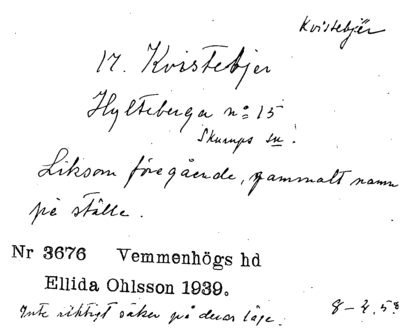 Kvistebjer
17. Kvistebjer
Hylteberga nº 15
Skurups sn.
Liksom föregående, gammalt namn
på ställe.
Nr 3676 Vemmenhögs hd
Ellida Ohlsson 1939.
Inte riktigt säker på deras läge.